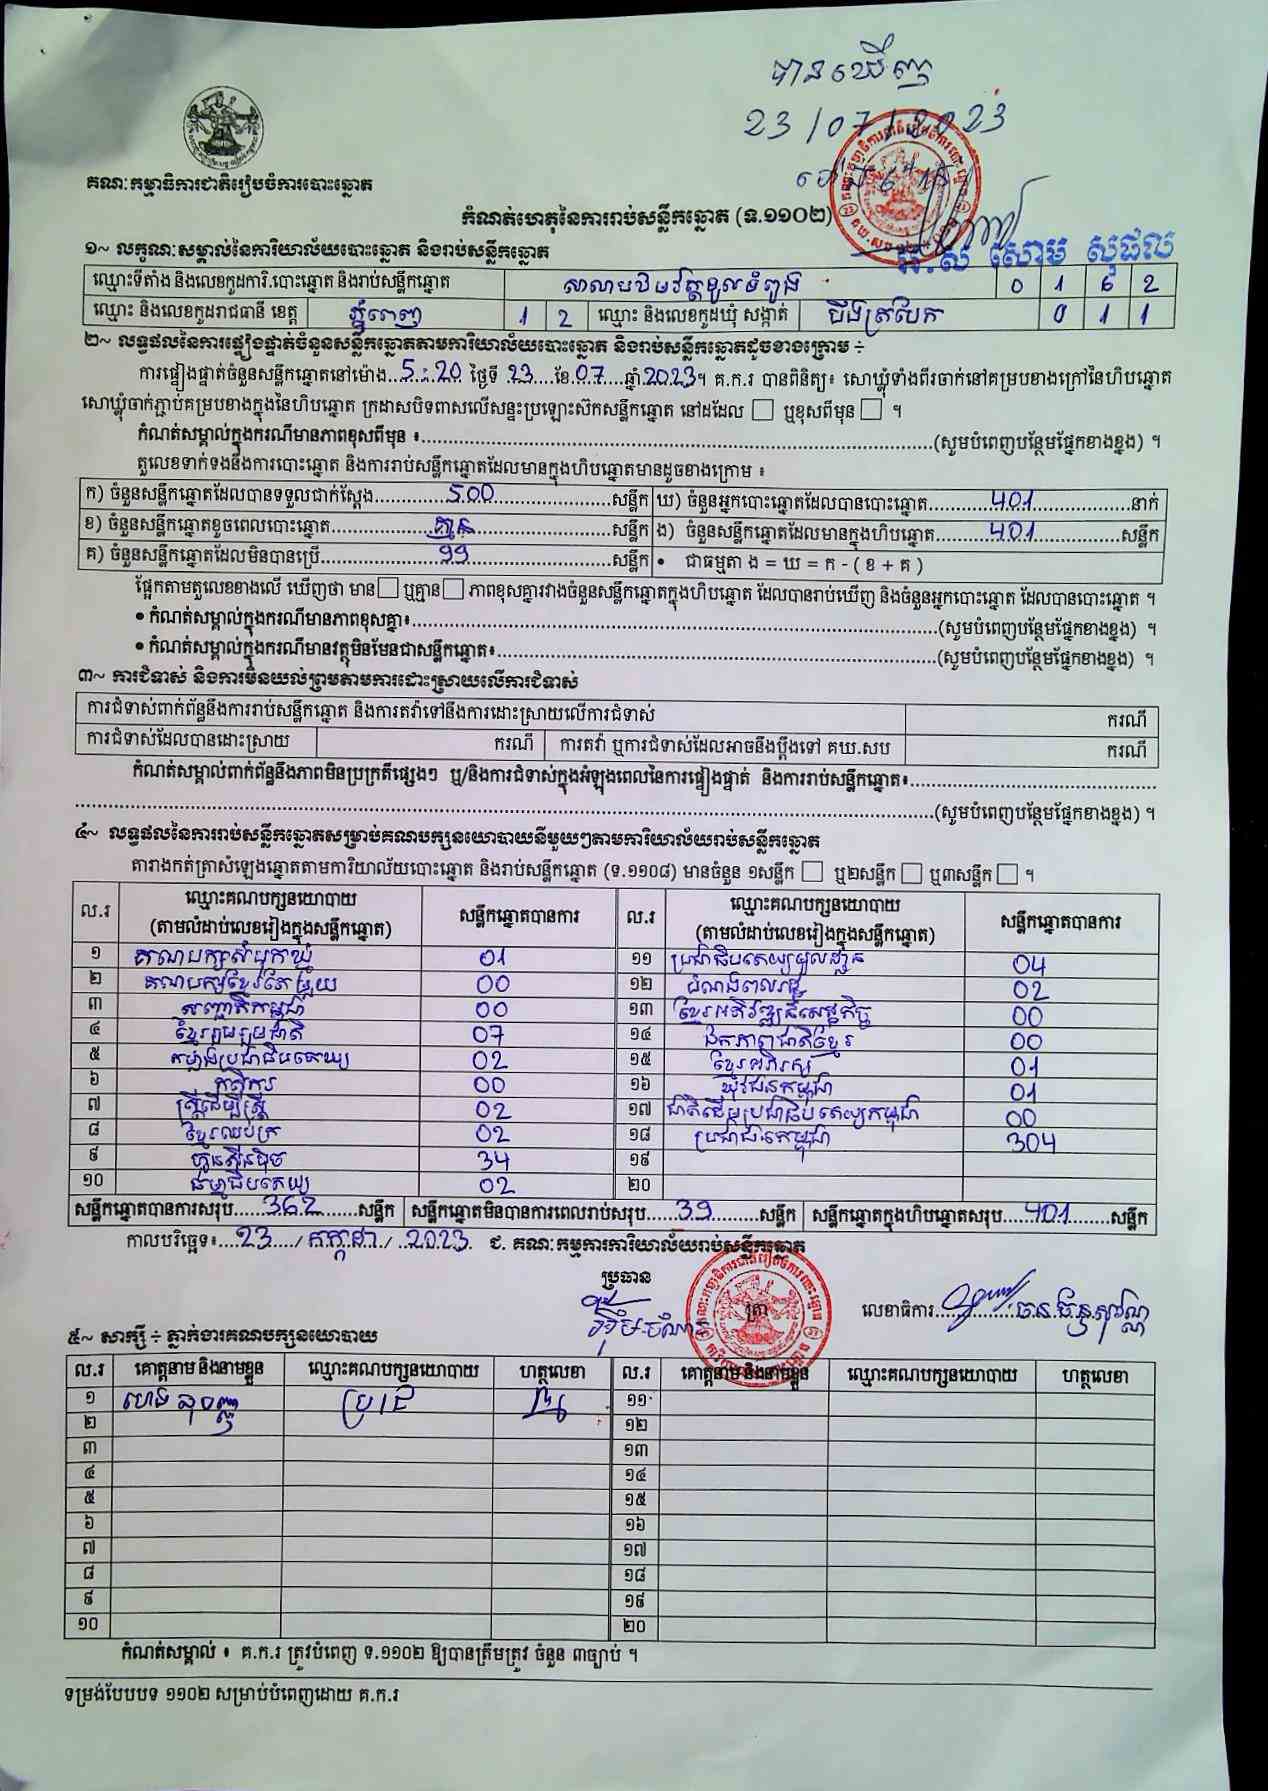 បានឃើញ
23/07/2023
គណៈកម្មាធិការជាតិរៀបចំការបោះឆ្នោត
កំណត់ហេតុនៃការរាប់សន្លឹកឆ្នោត (ទ.១១០២)
សោម សុផល
១~ លក្ខណៈសម្គាល់នៃការិយាល័យបោះឆ្នោត និងរាប់សន្លឹកឆ្នោត
ឈ្មោះទីតាំង និងលេខកូដការិ.បោះឆ្នោត និងរាប់សន្លឹកឆ្នោត សាលាបឋមវត្តទួលទំពូង 0 1 6 2
ឈ្មោះ និងលេខកូដរាជធានី ខេត្ត ភ្នំពេញ 1 2 ឈ្មោះ និងលេខកូដឃុំ សង្កាត់ បឹងត្របែក 0 1 1
២~ លទ្ធផលនៃការផ្ទៀងផ្ទាត់ចំនួនសន្លឹកឆ្នោតតាមការិយាល័យបោះឆ្នោត និងរាប់សន្លឹកឆ្នោតដូចខាងក្រោម ÷
ការផ្ទៀងផ្ទាត់ចំនួនសន្លឹកឆ្នោតនៅម៉ោង...5:20 ថ្ងៃទី 23 ខែ 07 ឆ្នាំ 2023។ គ.ក.រ បានពិនិត្យ៖ សោឃ្លុំទាំងពីរចាក់នៅគម្របខាងក្រៅនៃហិបឆ្នោត
សោឃ្លុំចាក់ភ្ជាប់គម្របខាងក្នុងនៃហិបឆ្នោត ក្រដាសបិទពាសលើសន្ទះប្រឡោះស៊កសន្លឹកឆ្នោត នៅដដែល □ ឬខុសពីមុន □ ។
កំណត់សម្គាល់ក្នុងករណីមានភាពខុសពីមុន ៖...(សូមបំពេញបន្ថែមផ្នែកខាងខ្នង) ។
តួលេខទាក់ទងនឹងការបោះឆ្នោត និងការរាប់សន្លឹកឆ្នោតដែលមានក្នុងហិបឆ្នោតមានដូចខាងក្រោម ៖
ក) ចំនួនសន្លឹកឆ្នោតដែលបានទទួលជាក់ស្តែង...500...សន្លឹក ឃ) ចំនួនអ្នកបោះឆ្នោតដែលបានបោះឆ្នោត...401...នាក់
ខ) ចំនួនសន្លឹកឆ្នោតខូចពេលបោះឆ្នោត...គ្មាន...សន្លឹក ង) ចំនួនសន្លឹកឆ្នោតដែលមានក្នុងហិបឆ្នោត...401...សន្លឹក
គ) ចំនួនសន្លឹកឆ្នោតដែលមិនបានប្រើ...99...សន្លឹក • ជាធម្មតា ង = ឃ = ក - ( ខ + គ )
ផ្អែកតាមតួលេខខាងលើ ឃើញថា មាន □ ឬគ្មាន □ ភាពខុសគ្នារវាងចំនួនសន្លឹកឆ្នោតក្នុងហិបឆ្នោត ដែលបានរាប់ឃើញ និងចំនួនអ្នកបោះឆ្នោត ដែលបានបោះឆ្នោត ។
• កំណត់សម្គាល់ក្នុងករណីមានភាពខុសគ្នា៖...(សូមបំពេញបន្ថែមផ្នែកខាងខ្នង) ។
• កំណត់សម្គាល់ក្នុងករណីមានវត្ថុមិនមែនជាសន្លឹកឆ្នោត៖...(សូមបំពេញបន្ថែមផ្នែកខាងខ្នង) ។
៣~ ការជំទាស់ និងការមិនយល់ព្រមតាមការដោះស្រាយលើការជំទាស់
ការជំទាស់ពាក់ព័ន្ធនឹងការរាប់សន្លឹកឆ្នោត និងការតវ៉ាទៅនឹងការដោះស្រាយលើការជំទាស់ ករណី
ការជំទាស់ដែលបានដោះស្រាយ ករណី ការតវ៉ា ឬការជំទាស់ដែលអាចនឹងប្តឹងទៅ គឃ.សប ករណី
កំណត់សម្គាល់ពាក់ព័ន្ធនឹងភាពមិនប្រក្រតីផ្សេងៗ ឬ/និងការជំទាស់ក្នុងអំឡុងពេលនៃការផ្ទៀងផ្ទាត់ និងការរាប់សន្លឹកឆ្នោត៖...
...(សូមបំពេញបន្ថែមផ្នែកខាងខ្នង) ។
៤~ លទ្ធផលនៃការរាប់សន្លឹកឆ្នោតសម្រាប់គណបក្សនយោបាយនីមួយៗតាមការិយាល័យរាប់សន្លឹកឆ្នោត
តារាងកត់ត្រាសំឡេងឆ្នោតតាមការិយាល័យបោះឆ្នោត និងរាប់សន្លឹកឆ្នោត (ទ.១១០៨) មានចំនួន ១សន្លឹក □ ឬ២សន្លឹក □ ឬ៣សន្លឹក □ ។
ល.រ ឈ្មោះគណបក្សនយោបាយ (តាមលំដាប់លេខរៀងក្នុងសន្លឹកឆ្នោត) សន្លឹកឆ្នោតបានការ ល.រ ឈ្មោះគណបក្សនយោបាយ (តាមលំដាប់លេខរៀងក្នុងសន្លឹកឆ្នោត) សន្លឹកឆ្នោតបានការ
១ គណបក្សសំបុកឃ្មុំ 01 ១១ ប្រជាធិបតេយ្យមូលដ្ឋាន 04
២ គណបក្សខ្មែរតែមួយ 00 ១២ ដំណងពលរដ្ឋ 02
៣ សញ្ជាតិកម្ពុជា 00 ១៣ ខ្មែរអភិវឌ្ឍន៍សេដ្ឋកិច្ច 00
៤ ខ្មែររួបរួមជាតិ 07 ១៤ ឯកភាពជាតិខ្មែរ 00
៥ កម្លាំងប្រជាធិបតេយ្យ 02 ១៥ ខ្មែរអភិរក្ស 01
៦ កសិករ 00 ១៦ យុវជនកម្ពុជា 01
៧ ស្ត្រីដើម្បីស្ត្រី 02 ១៧ ជាតិដើម្បីប្រជាធិបតេយ្យកម្ពុជា 00
៨ ខ្មែរឈប់ក្រ 02 ១៨ ប្រជាជនកម្ពុជា 304
៩ ហ្វ៊ុនស៊ិនប៉ិច 34 ១៩
១០ ធម្មាធិបតេយ្យ 02 ២០
សន្លឹកឆ្នោតបានការសរុប...362...សន្លឹក សន្លឹកឆ្នោតមិនបានការពេលរាប់សរុប...39...សន្លឹក សន្លឹកឆ្នោតក្នុងហិបឆ្នោតសរុប...401...សន្លឹក
កាលបរិច្ឆេទ៖...23.../ កក្កដា / 2023. ជ. គណៈកម្មការការិយាល័យរាប់សន្លឹកឆ្នោត
ប្រធាន ត្រា លេខាធិការ
៥~ សាក្សី ÷ ភ្នាក់ងារគណបក្សនយោបាយ
ល.រ គោត្តនាម និងនាមខ្លួន ឈ្មោះគណបក្សនយោបាយ ហត្ថលេខា ល.រ គោត្តនាម និងនាមខ្លួន ឈ្មោះគណបក្សនយោបាយ ហត្ថលេខា
១ ប្រជា ១១
២ ១២
៣ ១៣
៤ ១៤
៥ ១៥
៦ ១៦
៧ ១៧
៨ ១៨
៩ ១៩
១០ ២០
កំណត់សម្គាល់ ៖ គ.ក.រ ត្រូវបំពេញ ទ.១១០២ ឱ្យបានត្រឹមត្រូវ ចំនួន ៣ច្បាប់ ។
ទម្រង់បែបបទ ១១០២ សម្រាប់បំពេញដោយ គ.ក.រ